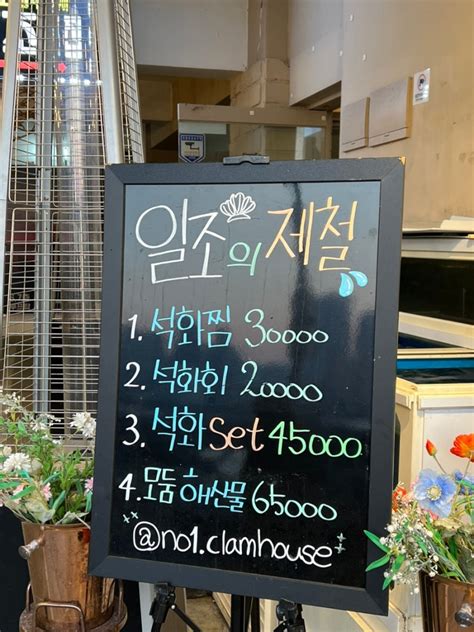 일조의 제철
1. 석화찜 30000
2. 석화회 20000
3. 석화 Set 45000
4. 모둠 해산물 65000
@no1.clamhouse